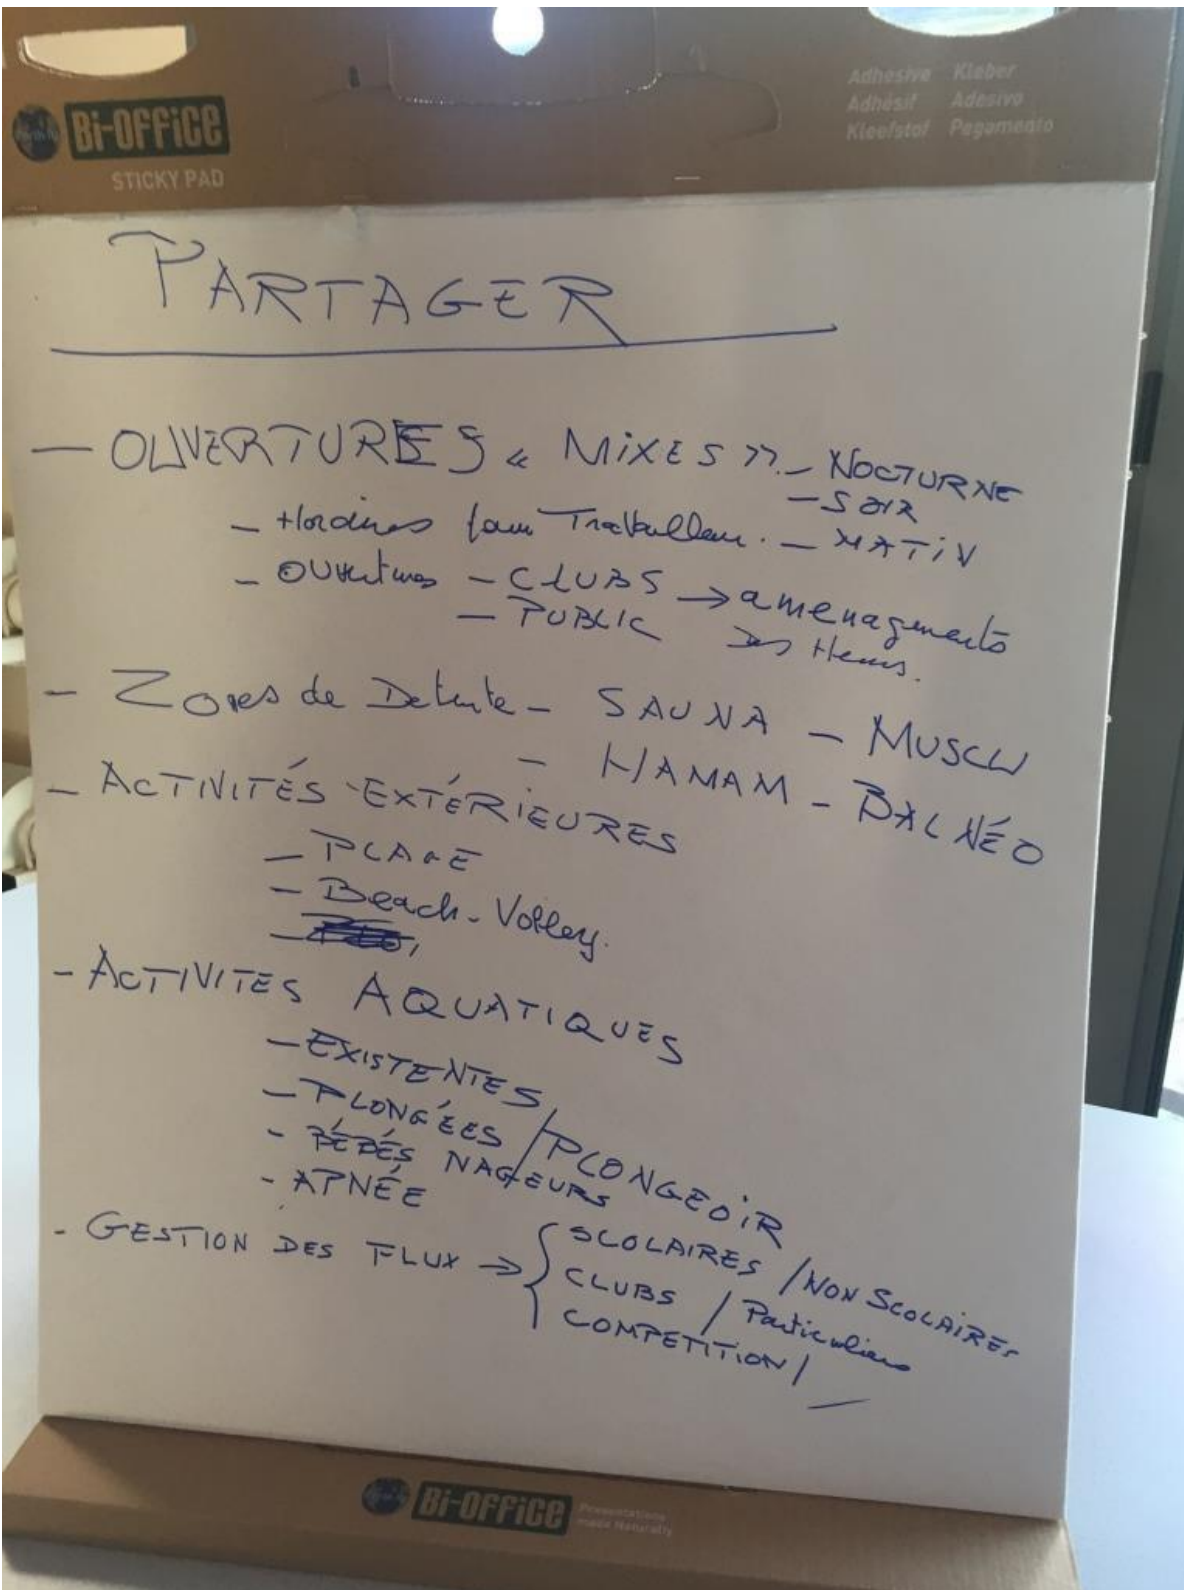 Bi-OFFiCE
STICKY PAD
Adhesive Kleber
Adhésif Adesivo
Kleefstof Pegamento
PARTAGER
— OUVERTURES « MiXES » — NOCTURNE
— SOIR
— Horaires pour Travailleur. — MATIN
— OUvertures — CLUBS → amenagements
— PUBLIC des Heures.
- Zones de Detente - SAUNA - MUSCU
- HAMAM - BALNÉO
- ACTIVITÉS EXTÉRIEURES
— PLAGE
— Beach-Volley.
- ACTIVITES AQUATIQUES
— EXISTENTES
— PLONGÉES / PLONGEOIR
- BÉBÉS NAGEURS
- APNÉE
- GESTION DES FLUX → { SCOLAIRES / NON SCOLAIRES
CLUBS / Particuliers
COMPETITION /
Bi-OFFiCE Presentations
made Naturally